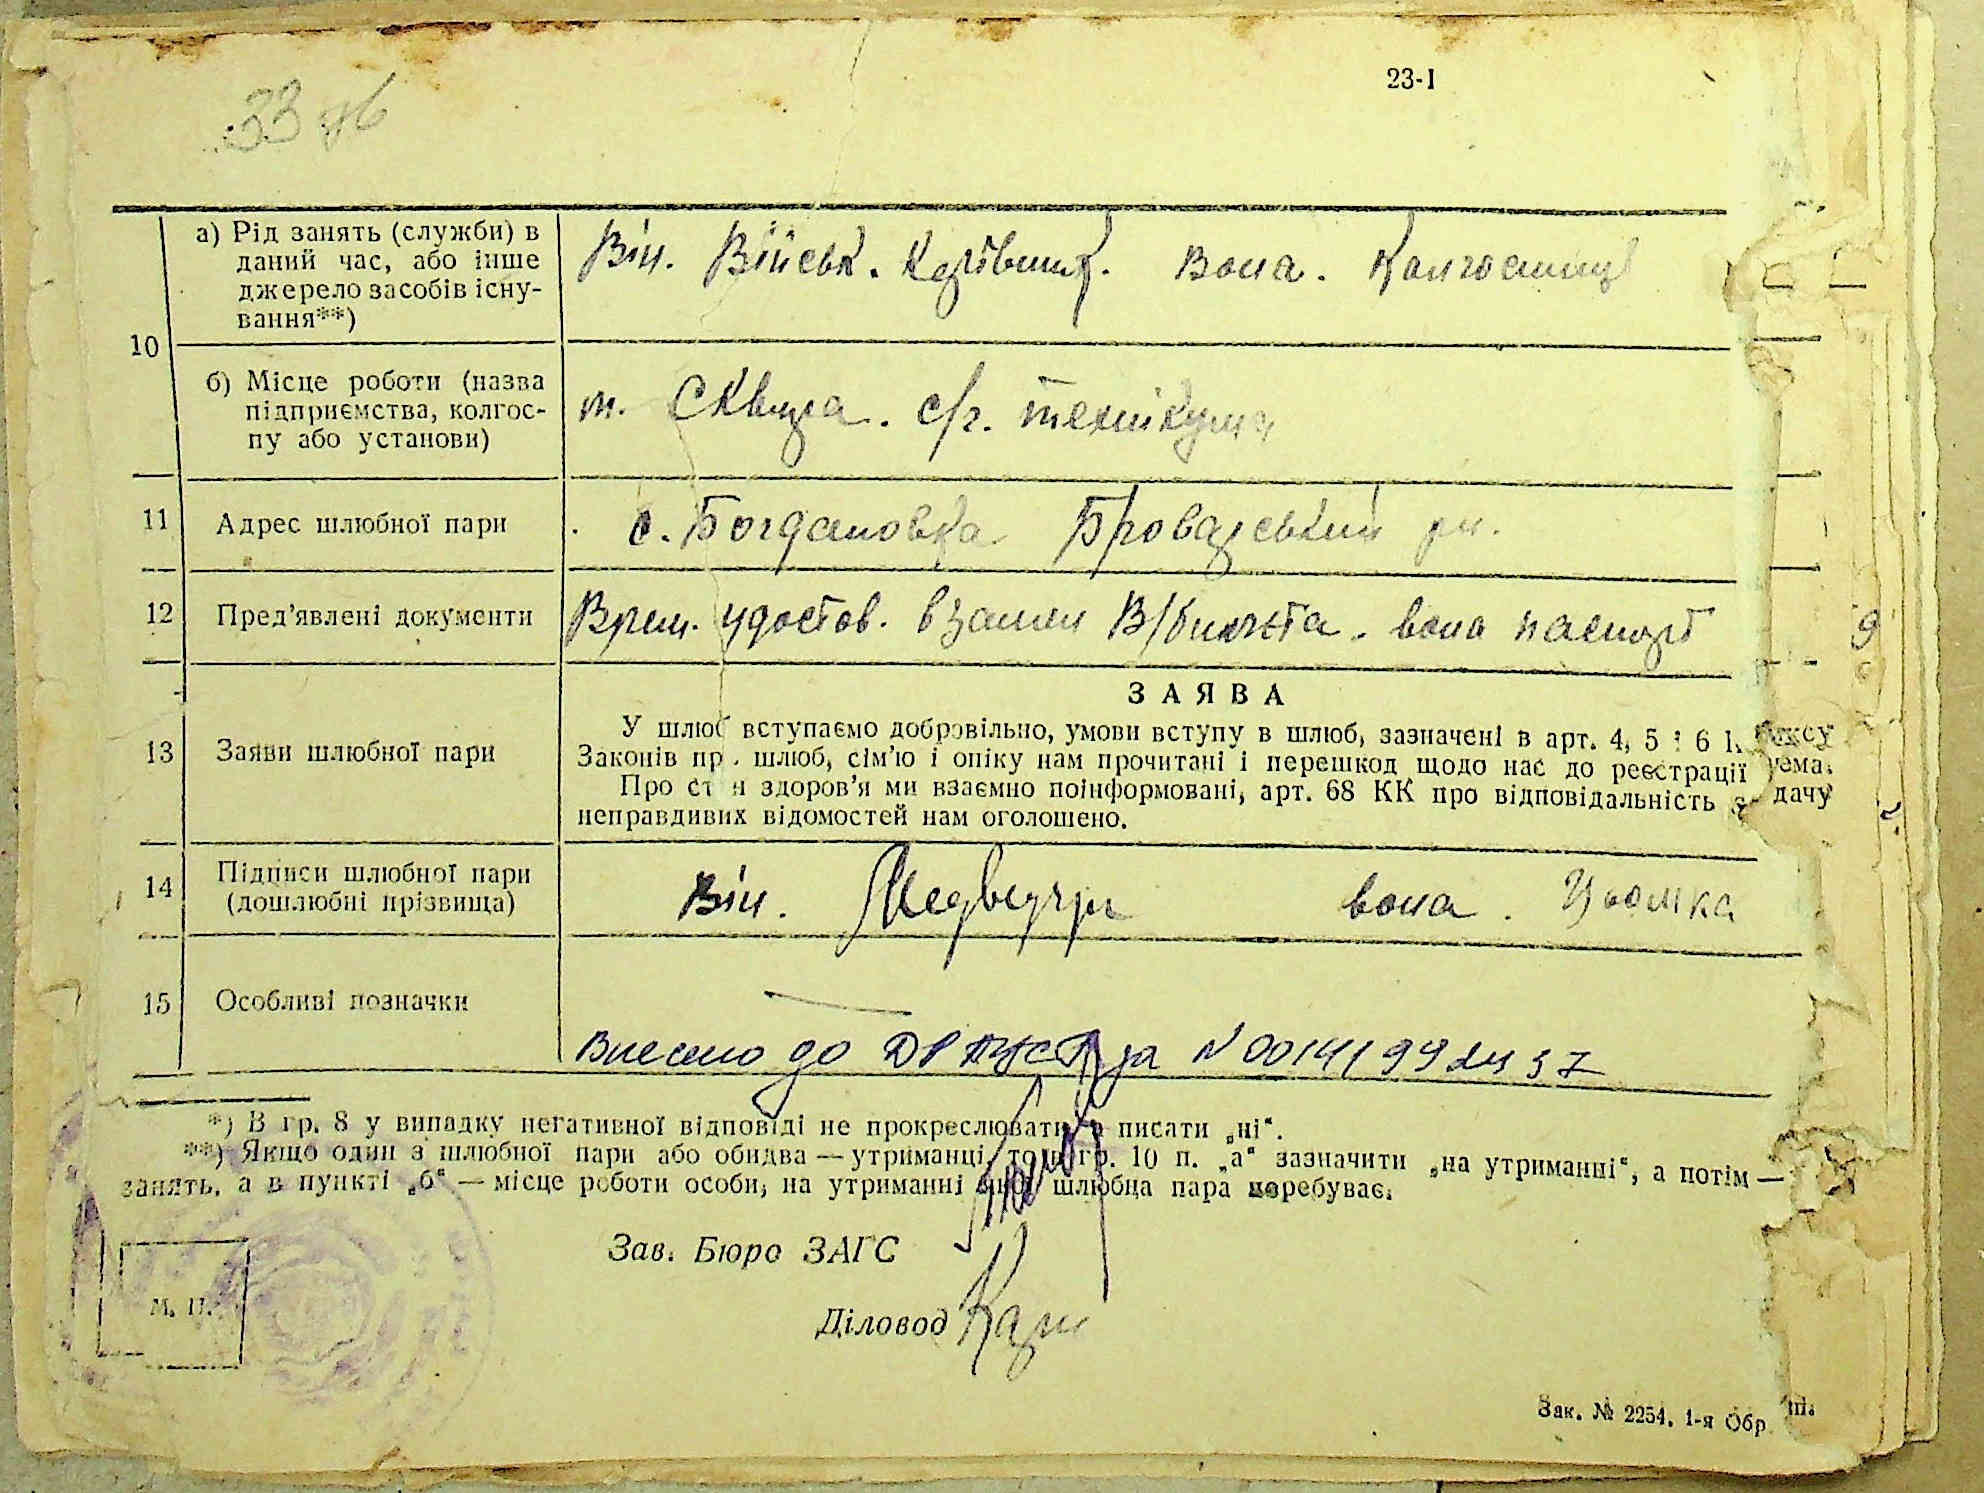 23-I
33
а) Рід занять (служби) в
даний час, або інше
джерело засобів існу-
вання**)
Він. Військ. Керівник. Вона. Колгоспниц
10
б) Місце роботи (назва
підприємства, колгос-
пу або установи)
м. Сквира. с/г. технікума
11 Адрес шлюбної пари с. Богдановка Броварський рн.
12 Пред’явлені документи Врем. удостов. взамен В/билета. вона паспорт
ЗАЯВА
13 Заяви шлюбної пари
У шлюб вступаємо добровільно, умови вступу в шлюб, зазначені в арт. 4, 5 і 6 К
Законів пр. шлюб, сім’ю і опіку нам прочитані і перешкод щодо нас до реєстрації
Про ст н здоров’я ми взаємно поінформовані, арт. 68 КК про відповідальність з дачу
неправдивих відомостей нам оголошено.
14 Підписи шлюбної пари
(дошлюбні прізвища)
Він. вона. Цьомка
15 Особливі позначки
Внесено до за N 00141992437
*) В гр. 8 у випадку негативної відповіді не прокреслювати, а писати „ні“.
**) Якщо один з шлюбної пари або обидва — утриманці, то в гр. 10 п. „а“ зазначити „на утриманні“, а потім —
занять, а в пункті „б“ — місце роботи особи, на утриманні шлюбна пара перебуває.
Зав. Бюро ЗАГС
М. П.
Діловод
Зак. № 2254. 1-я Обр тп.